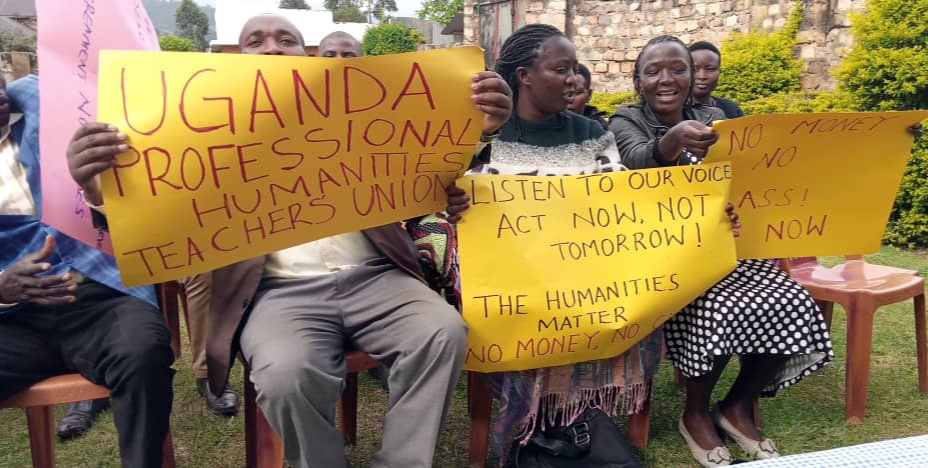 UGANDA
PROFESSIONAL
HUMANITIES
TEACHERS UNION
LISTEN TO OUR VOICE
ACT NOW, NOT
TOMORROW!
THE HUMANITIES
MATTER
NO MONEY, NO
NO MONEY
NO
ASS!
NOW